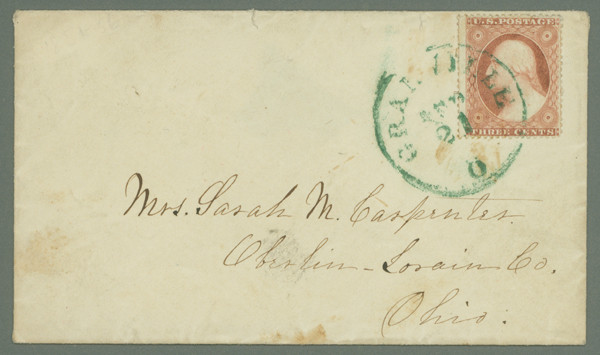 U.S. POSTAGE
THREE CENTS
GRANVILLE
APR
21
O.
Mrs. Sarah M. Carpenter.
Oberlin - Lorain Co.
Ohio.